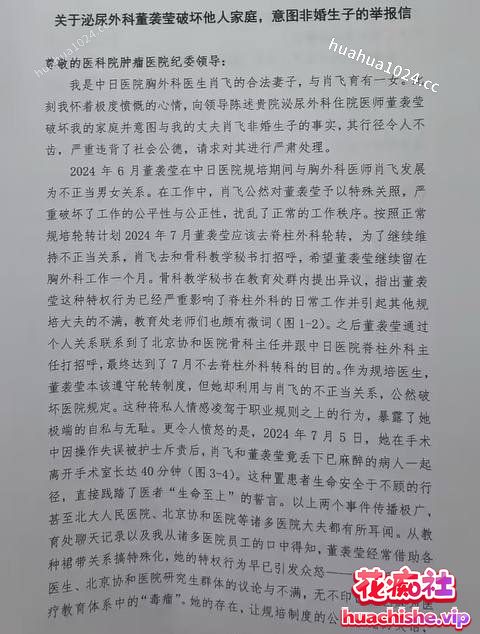 关于泌尿外科董袭莹破坏他人家庭，意图非婚生子的举报信
huahua1024.cc
尊敬的医科院肿瘤医院纪委领导：
我是中日医院胸外科医生肖飞的合法妻子，与肖飞育有一女。
刻我怀着极度愤慨的心情，向领导陈述贵院泌尿外科住院医师董袭莹
破坏我的家庭并意图与我的丈夫肖飞非婚生子的事实，其行径令人不
齿，严重违背了社会公德，请求对其进行严肃处理。
2024 年 6 月董袭莹在中日医院规培期间与胸外科医师肖飞发展
为不正当男女关系。在工作中，肖飞公然对董袭莹予以特殊关照，严
重破坏了工作的公平性与公正性，扰乱了正常的工作秩序。按照正常
规培轮转计划 2024 年 7 月董袭莹应该去脊柱外科轮转，为了继续维
持不正当关系，肖飞去和骨科教学秘书打招呼，希望董袭莹继续留在
胸外科工作一个月。骨科教学秘书在教育处群内提出异议，指出董袭
莹这种特权行为已经严重影响了脊柱外科的日常工作并引起其他规
培大夫的不满，教育处老师们也颇有微词（图1-2）。之后董袭莹通过
个人关系联系到了北京协和医院骨科主任并跟中日医院脊柱外科主
任打招呼，最终达到了 7 月不去脊柱外科转科的目的。作为规培医生，
董袭莹本该遵守轮转制度，但她却利用与肖飞的不正当关系，公然破
坏医院规定。这种将私人情感凌驾于职业规则之上的行为，暴露了她
极端的自私与无耻。更令人愤怒的是，2024 年 7 月 5 日，她在手术
中因操作失误被护士斥责后，肖飞和董袭莹竟丢下已麻醉的病人一起
离开手术室长达 40 分钟（图 3-4）。这种置患者生命安全于不顾的行
径，直接践踏了医者“生命至上”的誓言。以上两个事件传播极广，
甚至北大人民医院、北京协和医院等诸多医院大夫都有所耳闻。从教
育处聊天记录以及我从诸多医院员工的口中得知，董袭莹经常借助各
种裙带关系搞特殊化，她的特权行为早已引发众怒
医生、北京协和医院研究生群体的议论与不满，无不印
疗教育体系中的“毒瘤”。她的存在，让规培制度的公
花痴社
huachishe.vip